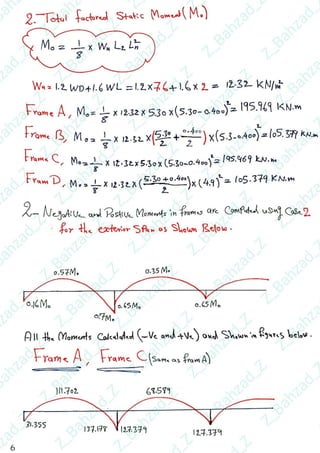 2. Total factored Static Moment (Mo)
Mo = 1/8 x Wu L2 Ln²
Wu = 1.2 WD + 1.6 WL = 1.2 x 7.6 + 1.6 x 2 = 12.32 KN/m²
Frame A, Mo = 1/8 x 12.32 x 5.30 x (5.30 - 0.400)² = 195.969 KN.m
Frame B, Mo = 1/8 x 12.32 x (5.30/2 + 0.400/2) x (5.3 - 0.400)² = 105.379 KN.m
Frame C, Mo = 1/8 x 12.32 x 5.30 x (5.30 - 0.400)² = 195.969 KN.m
Fram D, Mo = 1/8 x 12.32 x (5.30 + 0.400/2) x (4.9)² = 105.379 KN.m
2- Negative and Positive Moments in frames are Computed using Case 2
for the exterior Span as Shown Below.
0.57Mo 0.35Mo
0.16Mo 0.65Mo 0.65Mo
0.7Mo
All the Moments Calculated (-Ve and +Ve) and Shown in figures below.
Frame A, Frame C (Same as fram A)
111.702 68.589
31.355 137.178 127.379 127.379
6
Z_Bahzad_Z